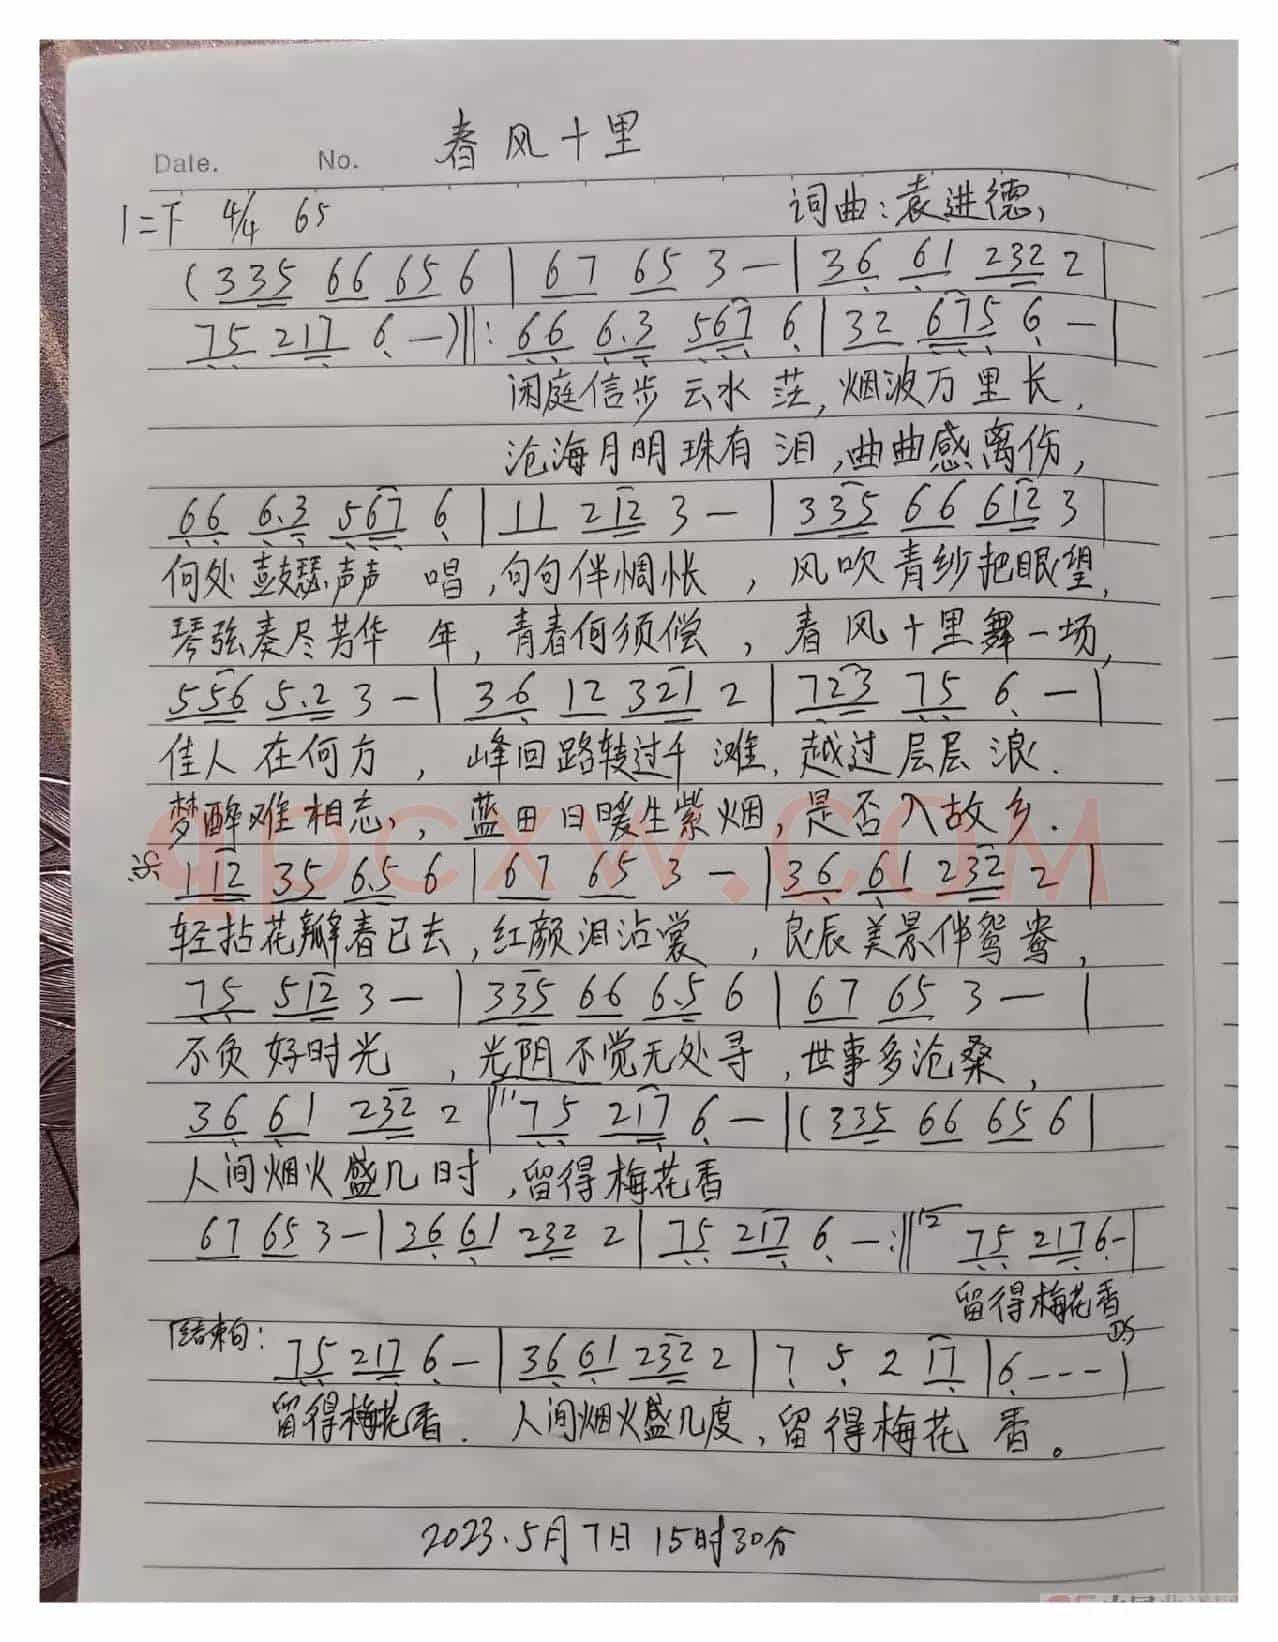 春风十里
Date. No.
1=F 4/4 65 词曲:袁进德,
(335 66 65 6 | 67 65 3 — | 36 61 232 2 |
75 217 6 —)‖: 66 6.3 567 6 | 32 675 6 — |
闲庭信步云水茫,烟波万里长,
沧海月明珠有泪,曲曲感离伤,
66 6.3 567 6 | 11 212 3 — | 335 66 612 3
何处鼓瑟声声唱,句句伴惆怅,风吹青纱把眼望,
琴弦奏尽芳华年,青春何须偿,春风十里舞一场,
556 5.2 3 — | 36 12 321 2 | 723 75 6 — |
佳人在何方,峰回路转过千滩,越过层层浪.
梦醉难相忘,,蓝田日暖生紫烟,是否入故乡.
qpcxw.com
112 35 6.5 6 | 67 65 3 — | 36 61 232 2 |
轻拈花瓣春已去,红颜泪沾裳,良辰美景伴鸳鸯,
75 512 3 — | 335 66 6.5 6 | 67 65 3 — |
不负好时光,光阴不觉无处寻,世事多沧桑,
36 61 232 2 | 75 217 6 — | (335 66 65 6 |
人间烟火盛几时,留得梅花香
67 65 3 — | 36 61 232 2 | 75 217 6 — :‖ 75 217 6 - |
留得梅花香
D.S
结束句: 75 217 6 — | 36 61 232 2 | 7 5 2 17 | 6 - - - |
留得梅花香. 人间烟火盛几度,留得梅花香。
2023.5月7日 15时30分